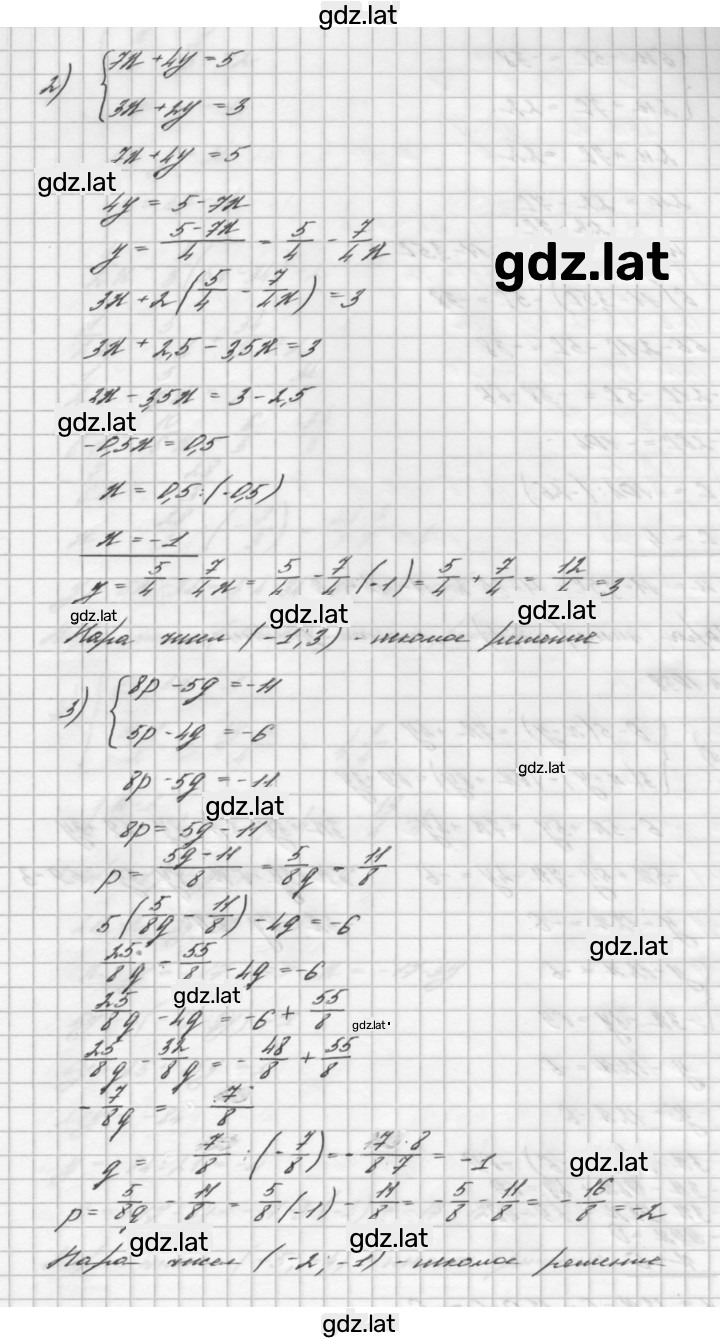 gdz.lat
2) { 7x + 4y = 5
3x + 2y = 3
7x + 4y = 5
gdz.lat
4y = 5 - 7x
y = (5 - 7x)/4 = 5/4 - 7/4 x
gdz.lat
3x + 2(5/4 - 7/4x) = 3
3x + 2,5 - 3,5x = 3
3x - 3,5x = 3 - 2,5
gdz.lat
-0,5x = 0,5
x = 0,5 : (-0,5)
x = -1
y = 5/4 - 7/4 x = 5/4 - 7/4 (-1) = 5/4 + 7/4 = 12/4 = 3
gdz.lat gdz.lat gdz.lat
Пара чисел (-1; 3) - искомое решение
3) { 8p - 5q = -11
5p - 4q = -6
gdz.lat
8p - 5q = -11
gdz.lat
8p = 5q - 11
p = (5q - 11)/8 = 5/8 q - 11/8
5(5/8 q - 11/8) - 4q = -6
gdz.lat
25/8 q - 55/8 - 4q = -6
gdz.lat
25/8 q - 4q = -6 + 55/8
gdz.lat
25/8 q - 32/8 q = - 48/8 + 55/8
- 7/8 q = 7/8
q = 7/8 : (- 7/8) = - 7·8/8·7 = -1
gdz.lat
p = 5/8 q - 11/8 = 5/8 (-1) - 11/8 = - 5/8 - 11/8 = - 16/8 = -2
gdz.lat gdz.lat
Пара чисел (-2; -1) - искомое решение
gdz.lat